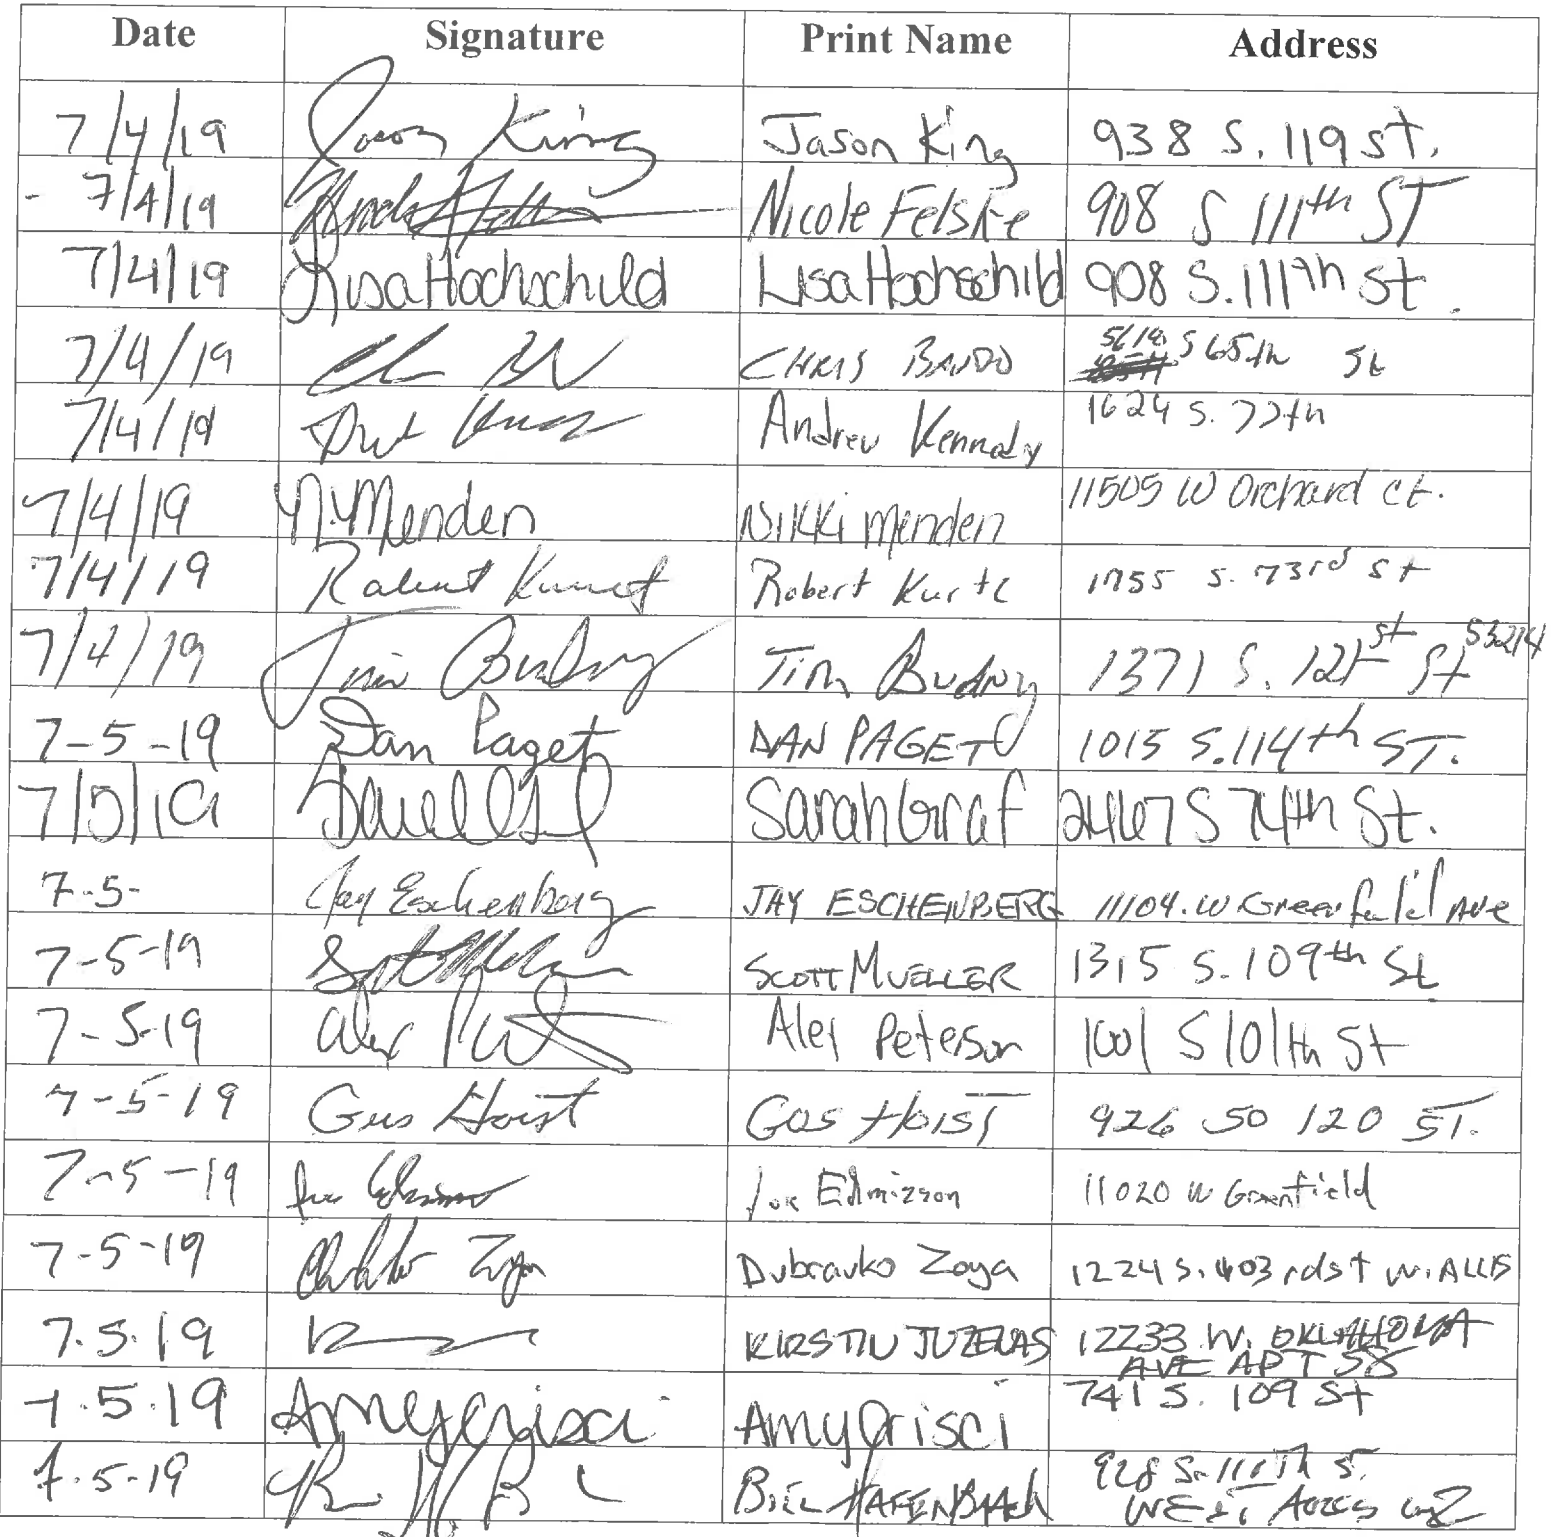 Date Signature Print Name Address
7/4/19 Jason King Jason King 938 S. 119 st.
7/4/19 Nicole Felske 908 S 111th ST
7/4/19 Lisa Hochschild Lisa Hochschild 908 S. 111th St.
7/4/19 CHRIS BANDO S 65th St
7/4/19 Andrew Kennedy 1624 S. 77th
7/4/19 N. Menden Nikki Menden 11505 W Orchard ct.
7/4/19 Robert 1755 S. 73rd St
7/4/19 Tim Budny Tim Budny 1371 S. 121st St 53214
7-5-19 Dan Paget DAN PAGET 1015 S. 114th ST.
7/5/19 Sarah Graf 2467 S 74th St.
7-5- Jay Eschenberg JAY ESCHENBERG 11104 W Greenfield Ave
7-5-19 SCOTT MUELLER 1315 S. 109th St
7-5-19 Alex Alex Peterson 1001 S 101th St
7-5-19 Gus Hoist Gus HOIST 926 SO 120 ST.
7-5-19 Joe Edmizson 11020 W Greenfield
7-5-19 Dubravko Zoya 1224 S. 103rd st W. ALLIS
7.5.19 KIRSTIN JUZENAS 12233 W. OKLAHOMA
AVE APT 58
7.5.19 Amy Crisci Amy Crisci 741 S. 109 St
7.5-19 BILL HAFENBRACK 928 S.
WEST